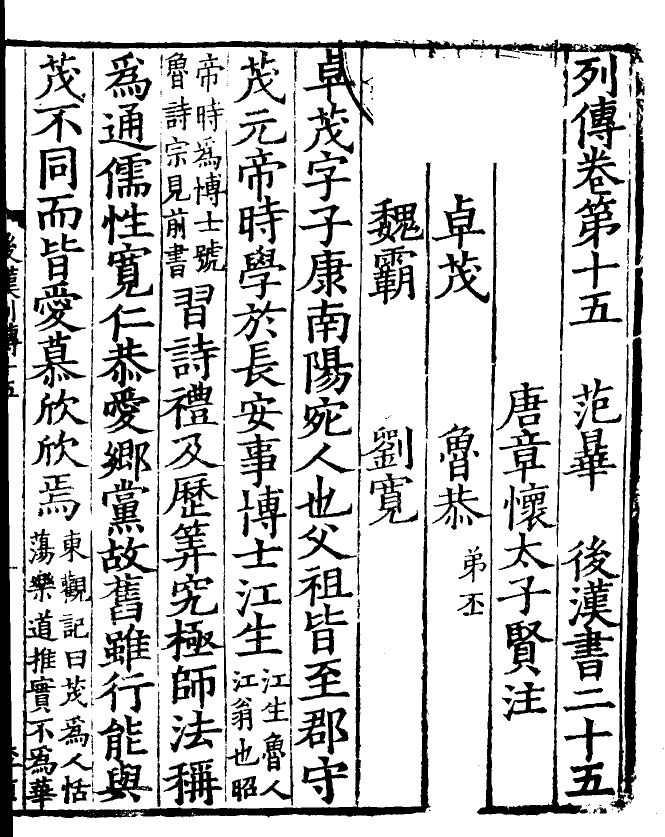 列傳卷第十五 范曅 後漢書二十五
唐章懷太子賢注
卓茂 魯恭弟丕
魏霸 劉寬
卓茂字子康南陽宛人也父祖皆至郡守
茂元帝時學於長安事博士江生江生魯人江翁也昭
帝時爲博士號魯詩宗見前書習詩禮及歷筭究極師法稱
爲通儒性寬仁恭愛鄉黨故舊雖行能與
茂不同而皆愛慕欣欣焉東觀記曰茂爲人恬蕩樂道推實不爲華
後漢列傳十五